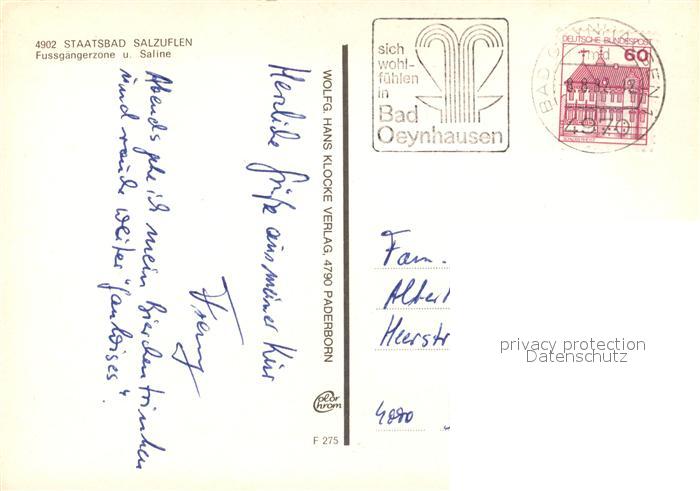 4902 STAATSBAD SALZUFLEN
Fussgängerzone u. Saline
Herzliche Grüße aus meiner Kur
Abends gehe ich mein Bierchen trinken
und rauche weiter "Gauloises".
WOLFG. HANS KLOCKE VERLAG, 4790 PADERBORN
Color
chrom
F 275
sich
wohl-
fühlen
in
Bad
Oeynhausen
BAD OEYNHAUSEN 1
4970
DEUTSCHE BUNDESPOST
60
Fam.
Albert
Heerstr
4000
privacy protection
Datenschutz